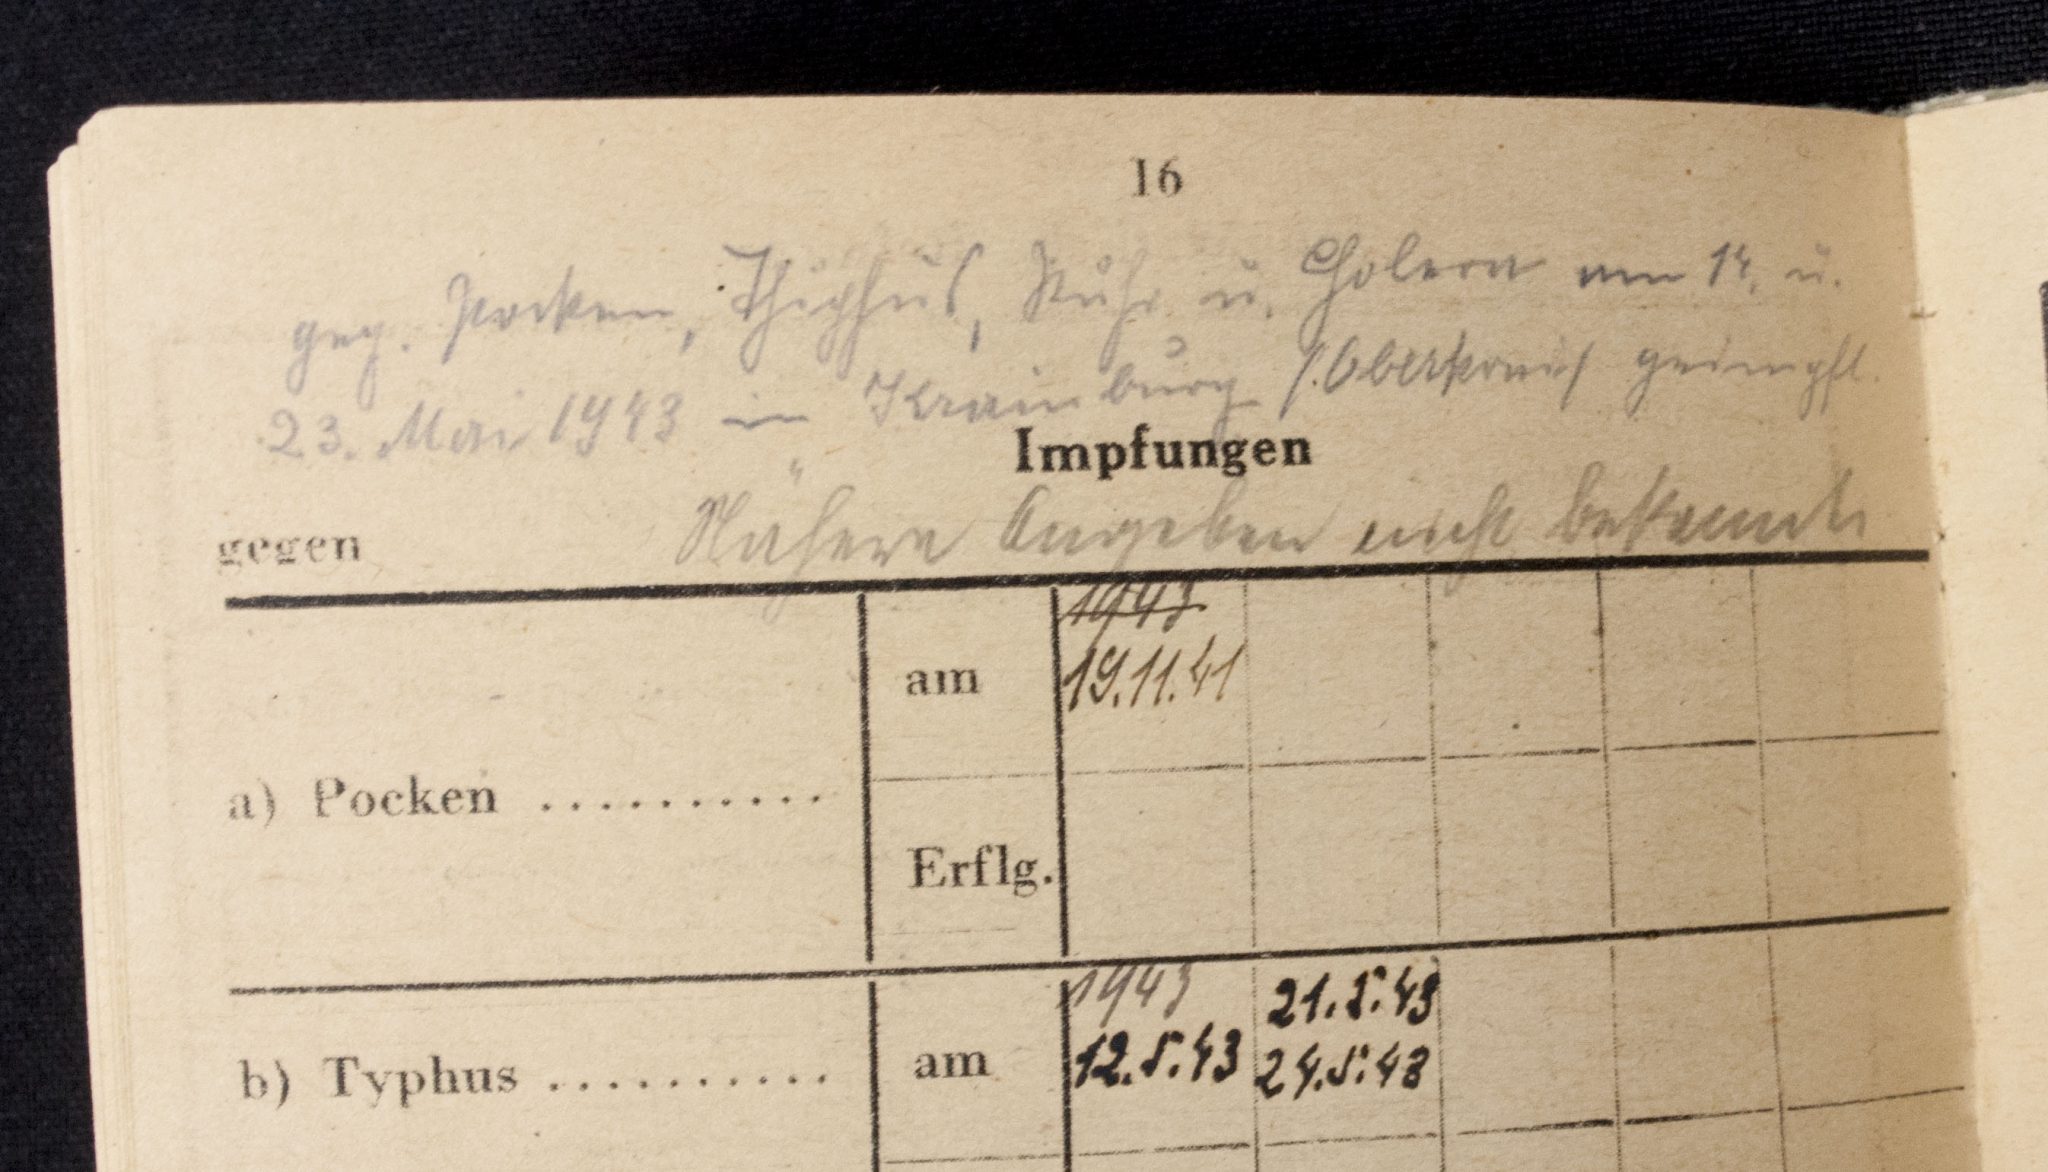 16
geg. Pocken, Thiphus, Ruhr u. Cholera am 14. u.
23. Mai 1943 in Krainburg /Oberkrain/ geimpft.
Impfungen
Nähere Angaben nicht bekannt.
gegen
1943
am 19.11.41
a) Pocken ..........
Erflg.
1943 21.5.43
b) Typhus .......... am 12.5.43 24.5.43